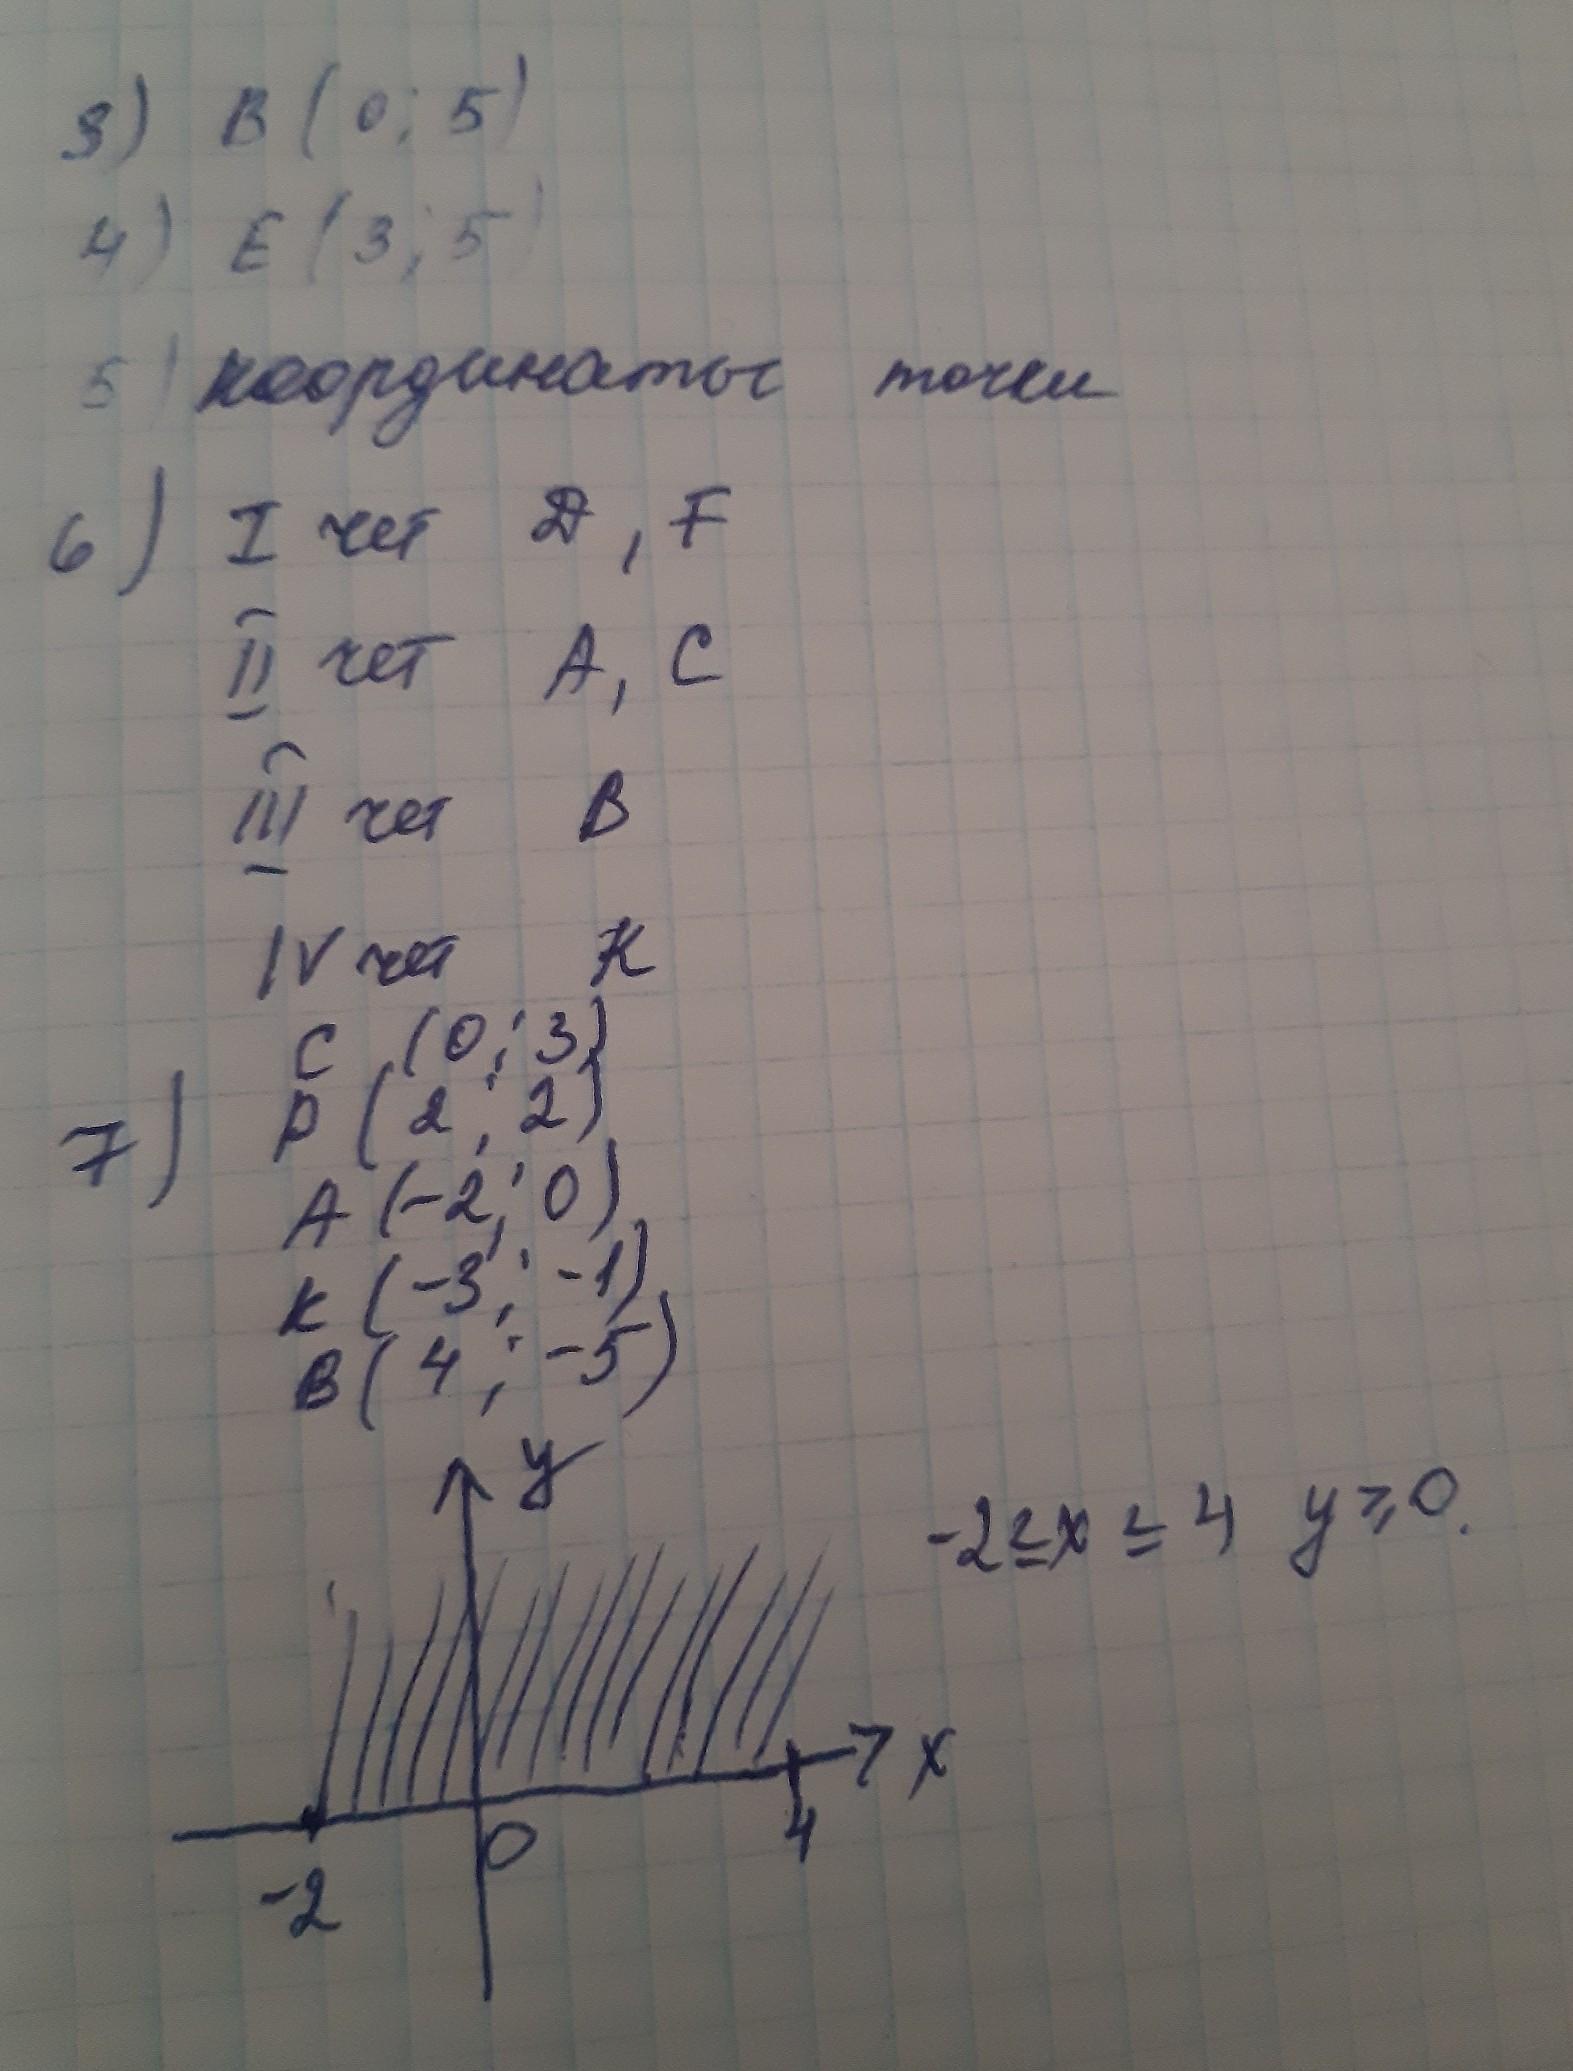 3) B(0;5)
4) E(3;5)
5) координаты точки
6) I чет D, F
II чет A, C
III чет B
IV чет K
C (0;3)
7) D(2;2)
A(-2;0)
K(-3;-1)
B(4;-5)
y
-2≤x≤4 y≥0.
x
0
4
-2